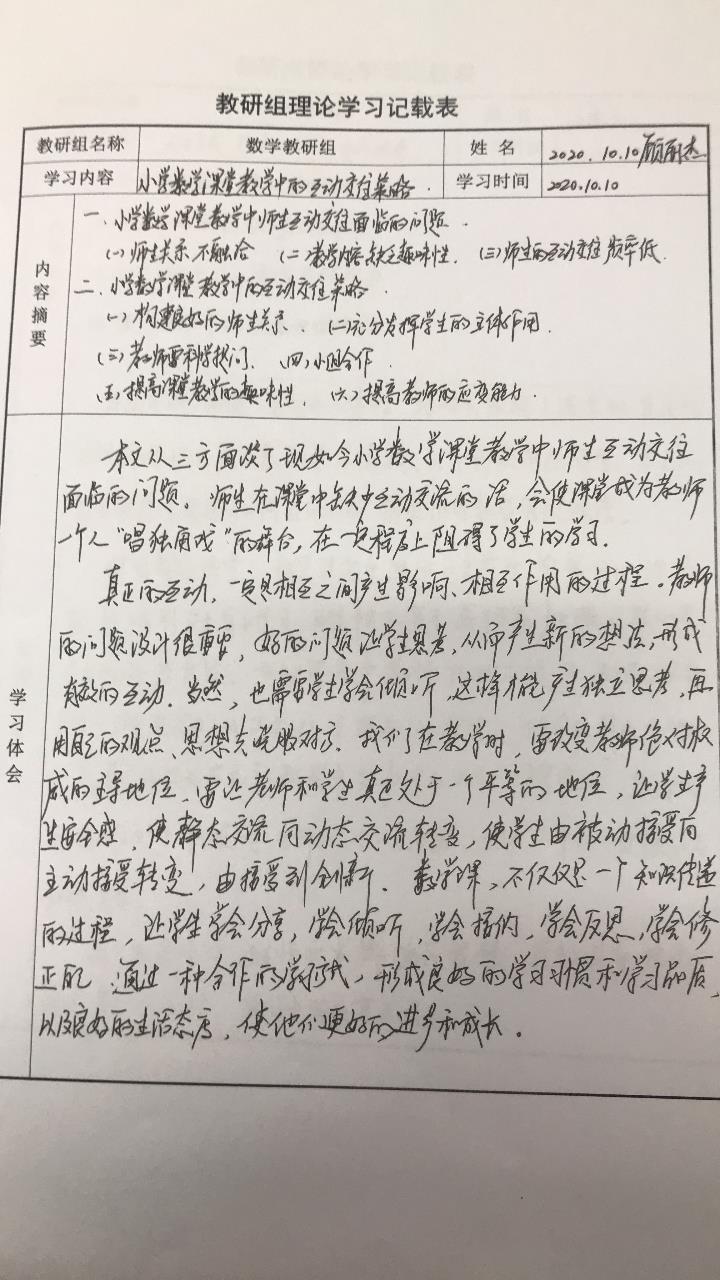 教研组理论学习记载表
教研组名称 数学教研组 姓名 2020.10.10 顾丽杰
学习内容 小学数学课堂教学中的互动交往策略. 学习时间 2020.10.10
内容摘要
一、小学数学课堂教学中师生互动交往面临的问题.
(一)师生关系不融洽 (二)教学内容缺乏趣味性. (三)师生的互动交往频率低.
二、小学数学课堂教学中的互动交往策略.
(一)构建良好的师生关系. (二)充分发挥学生的主体作用.
(三)教师要科学提问. (四)小组合作.
(五)提高课堂教学的趣味性. (六)提高教师的应变能力.
学习体会
本文从三方面谈了现如今小学数学课堂教学中师生互动交往
面临的问题。师生在课堂中缺少互动交流的话,会使课堂成为教师
一个人“唱独角戏”的舞台,在一定程度上阻碍了学生的学习.
真正的互动,一定是相互之间产生影响、相互作用的过程。教师
的问题设计很重要,好的问题让学生思考,从而产生新的想法,形成
有效的互动.当然,也需要学生学会倾听,这样才能产生独立思考,再
用自己的观点、思想去说服对方.我们在教学时,要改变教师绝对权
威的主导地位,要让老师和学生真正处于一个平等的地位,让学生产
生安全感,使静态交流向动态交流转变,使学生由被动接受向
主动接受转变,由接受到创新.数学课,不仅仅是一个知识传递
的过程,让学生学会分享,学会倾听,学会接纳,学会反思,学会修
正自己.通过一种合作的学习方式,形成良好的学习习惯和学习品质,
以及良好的生活态度,使他们更好的进步和成长。